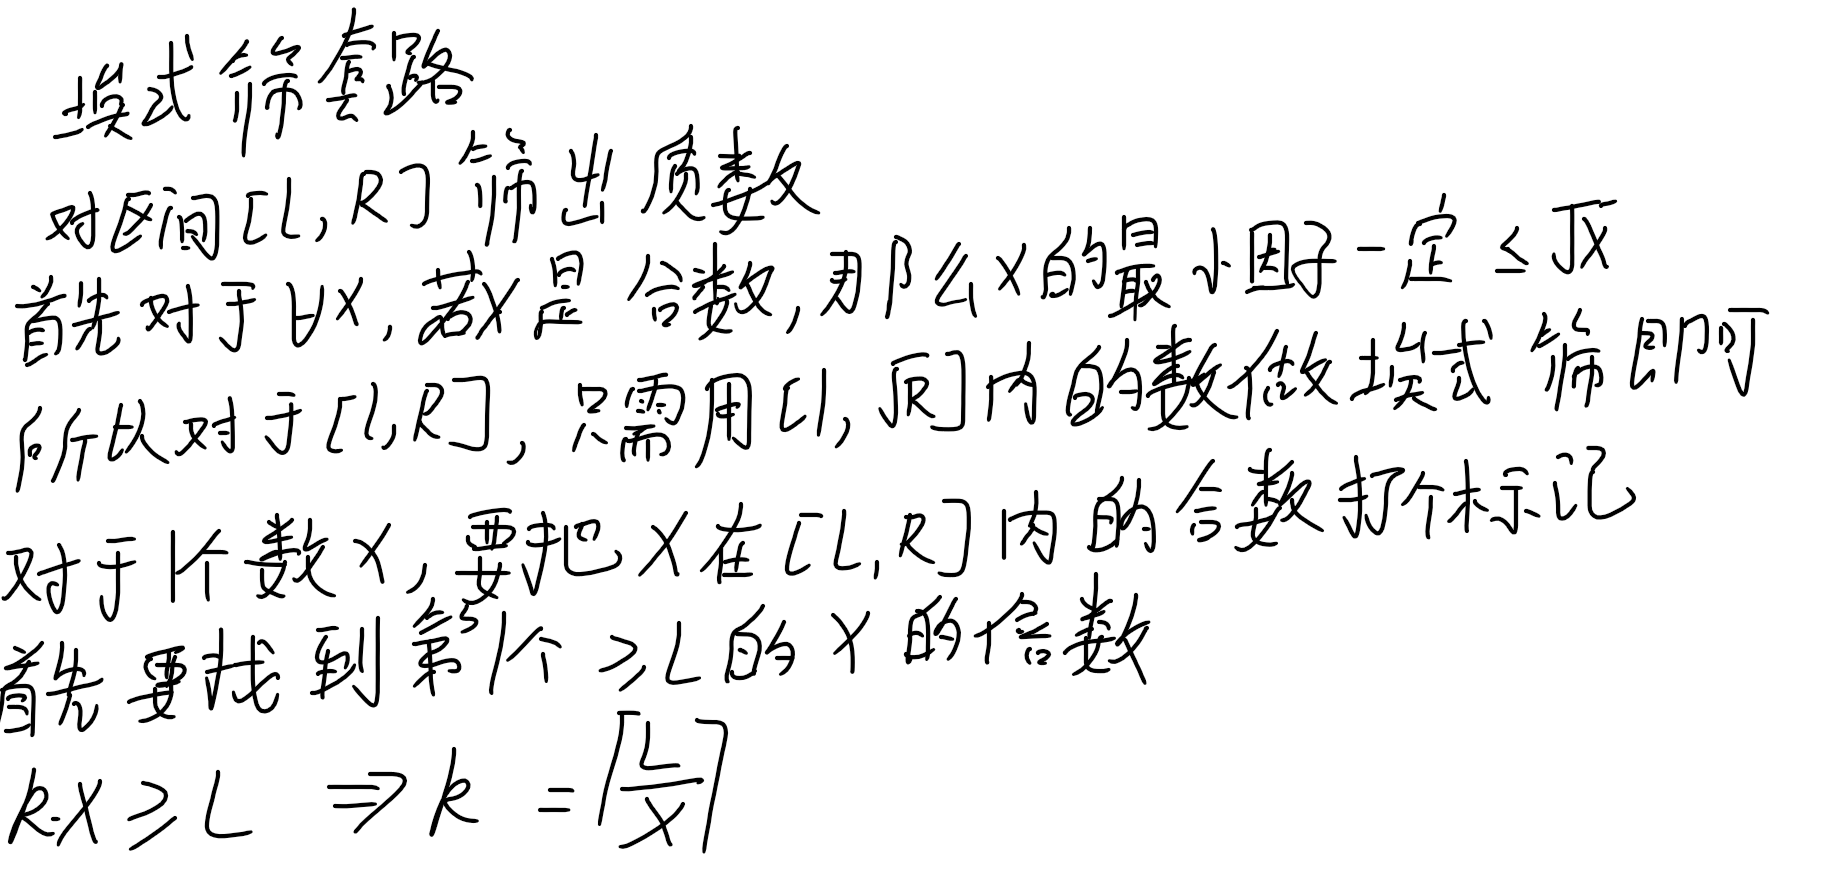 埃式筛套路
对区间[L,R]筛出质数
首先对于∀x,若x是合数,那么x的最小因子一定≤√x
所以对于[l,R],只需用[1,√R]内的数做埃式筛即可
对于1个数x,要把x在[L,R]内的合数打个标记
首先要找到第1个≥L的x的倍数
k·x≥L ⇒ k =⌈L/x⌉